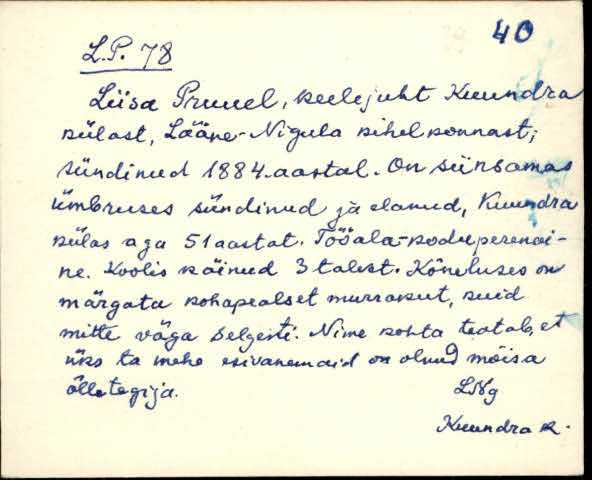 40
L.P. 78
Liisa Pruuel, keelejuht Kuundra
külast, Lääne-Nigula kihelkonnast;
sündinud 1884. aastal. On siinsamas
ümbruses sündinud ja elanud, Kuundra
külas aga 51 aastat. Tööala-koduperenai-
ne. Koolis käinud 3 talvet. Kõneluses on
märgata kohapealset murrakut, kuid
mitte väga selgesti. Nime kohta teatab, et
üks ta mehe esivanemaid on olnud mõisa
õlletegija.
LNg
Kuundra k.